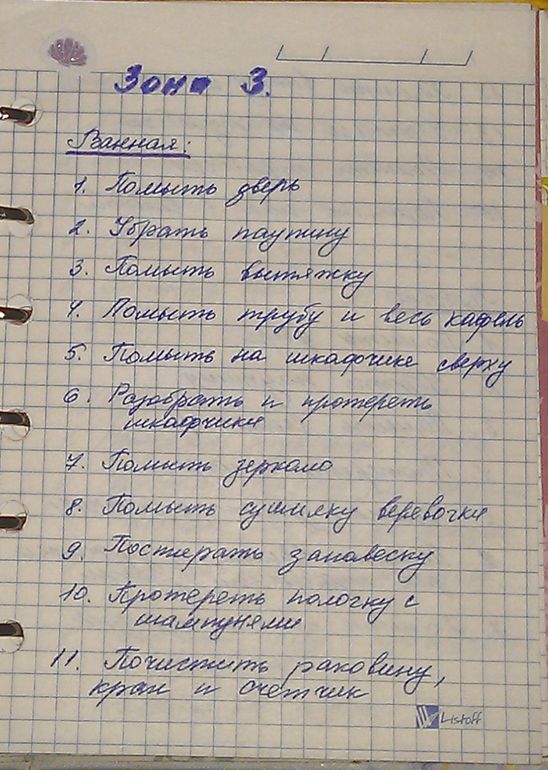 Зона 3.
Ванная:
1. Помыть дверь
2. Убрать паутину
3. Помыть вытяжку
4. Помыть трубу и весь кафель
5. Помыть на шкафчике сверху
6. Разобрать и протереть
шкафчики
7. Помыть зеркало
8. Помыть сушилку веревочки
9. Постирать занавеску
10. Протереть полочку с
шампунями
11. Почистить раковину,
кран и счетчик
Listoff